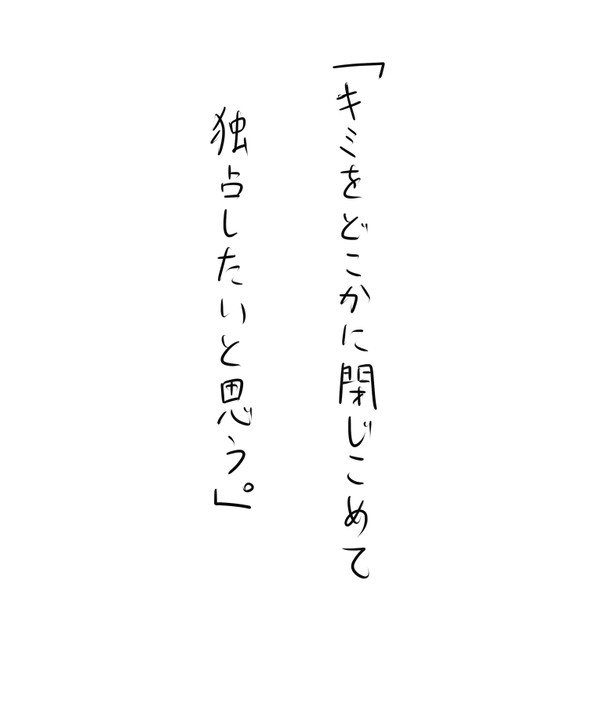 「キミをどこかに閉じこめて
独占したいと思う。」